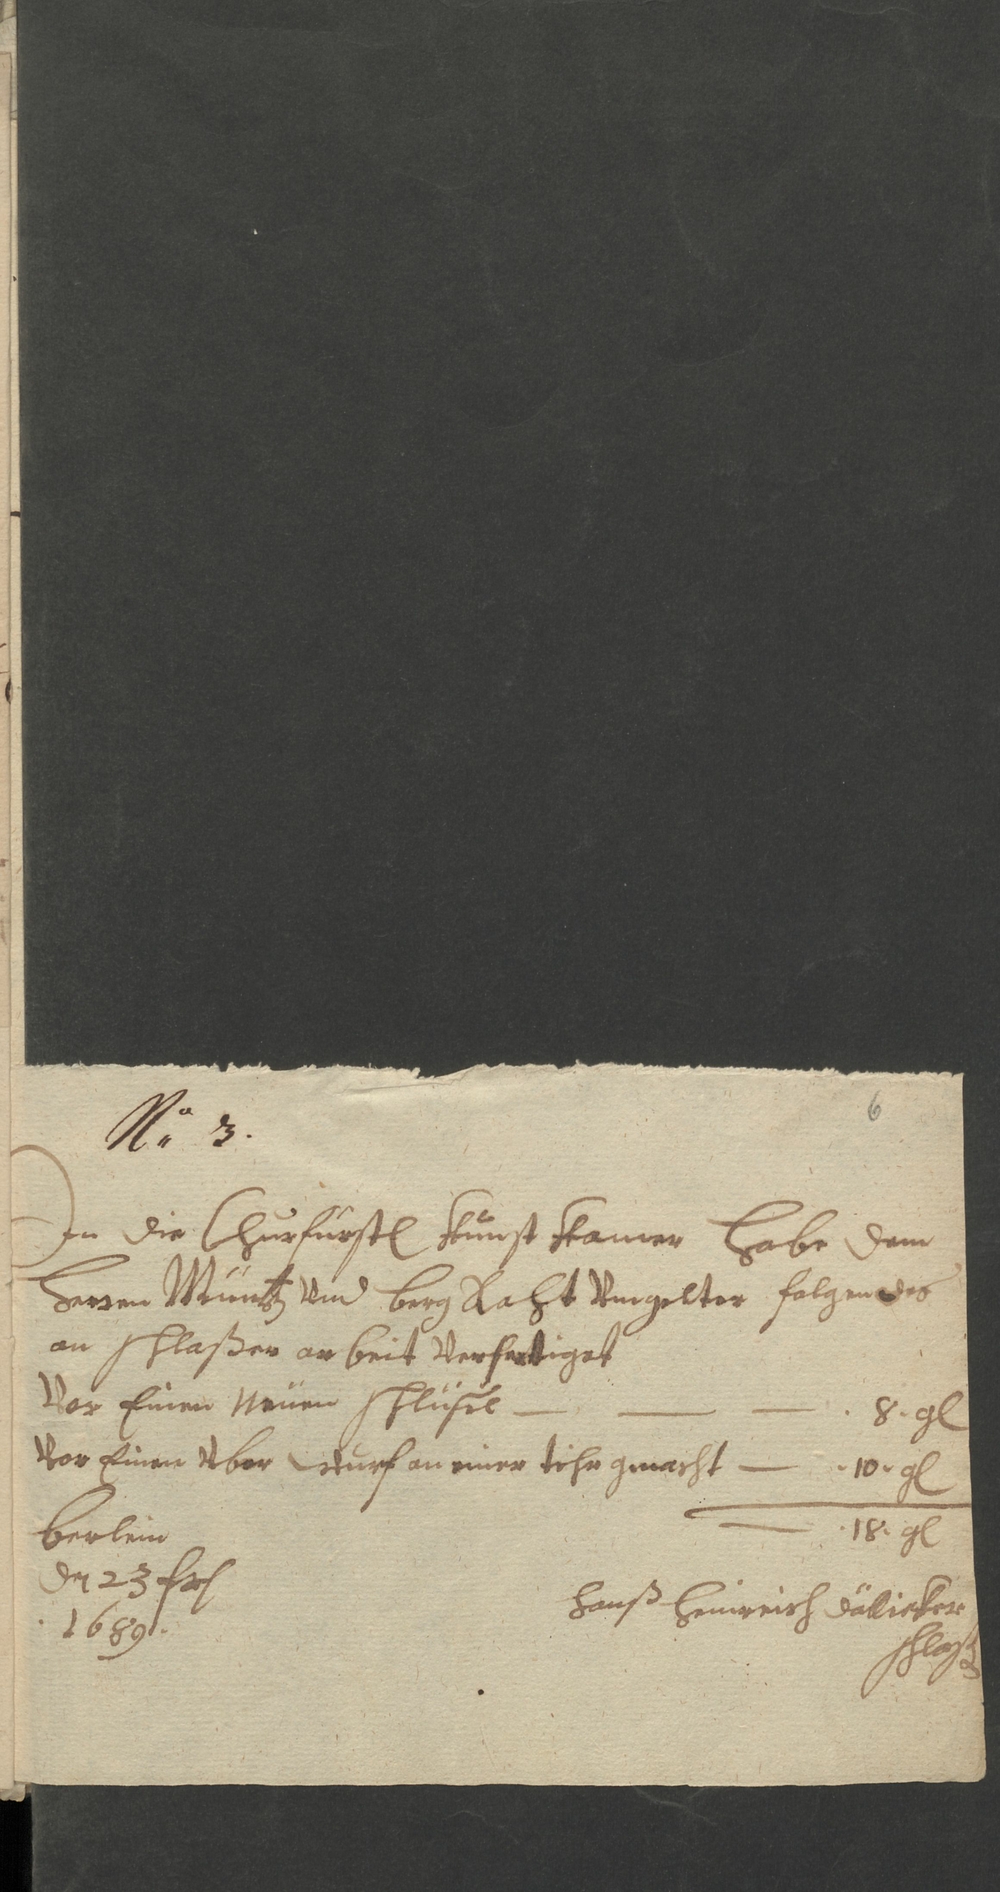 No 3.
6
In die Churfürstl Kunst Kamer habe dem
herren Müntz Und berg Raht Ungelter folgendes
an schlaßer arbeit Verfertiget
Vor Einen Neuen schlüsel — — — 8. gl
Vor Einen Uber wurf an einer tihr gemacht — 10. gl
— 18. gl
berlein
den 23
1689.
hanß heinreich
schlaß